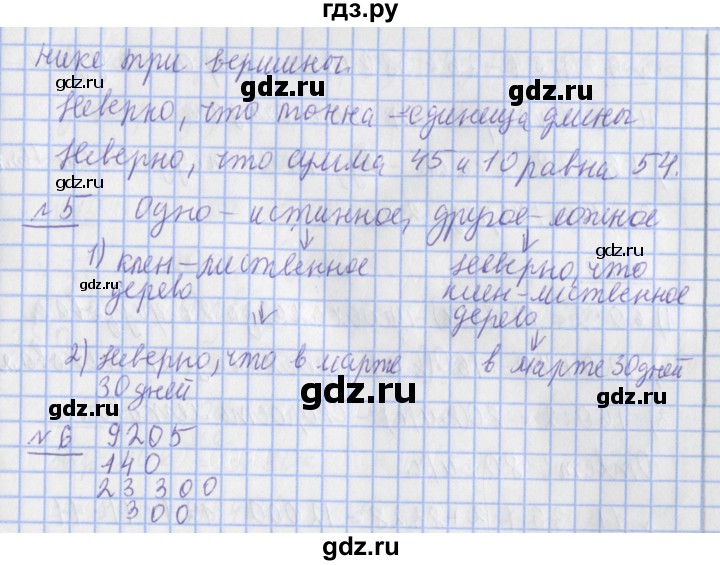 гдз.ру
нике три вершины.
gdz.ru gdz.ru gdz.ru
Неверно, что тонна - единица длины
Неверно, что сумма 45 и 10 равна 54.
gdz.ru gdz.ru
№5 Одно - истинное, другое - ложное
gdz.ru gdz.ru
1) клен - лиственное дерево
Неверно, что клен - лиственное дерево
gdz.ru gdz.ru
2) Неверно, что в марте 30 дней
в марте 30 дней
gdz.ru gdz.ru gdz.ru
№6 9205
140
23 300
300
gdz.ru gdz.ru
gdz.ru